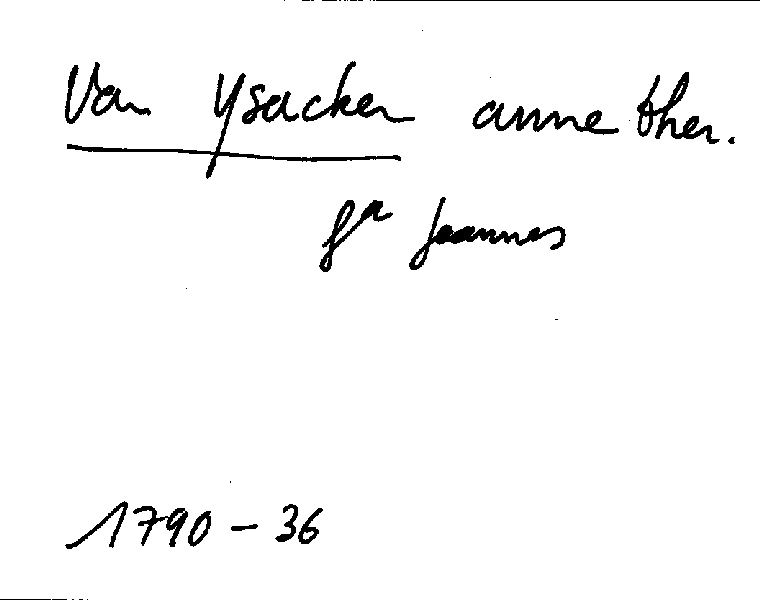 Van Ysacker anne ther.
fa Joannes
1790 - 36